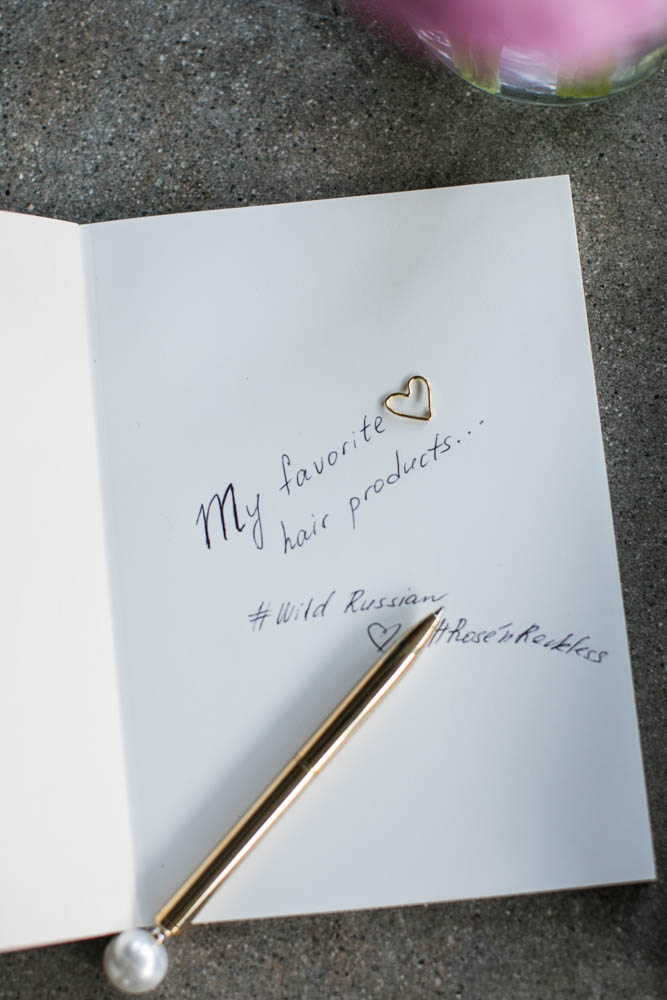 My favorite
hair products...
#Wild Russian
#Rosé'nReckless